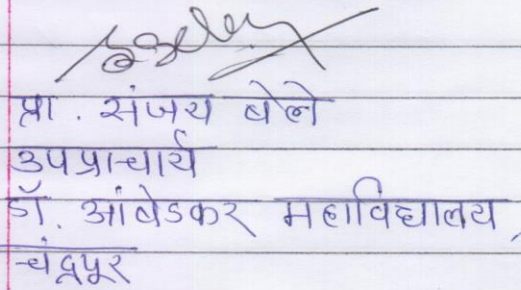 प्रा. संजय बेले
उपप्राचार्य
डॉ. आंबेडकर महाविद्यालय,
चंद्रपूर